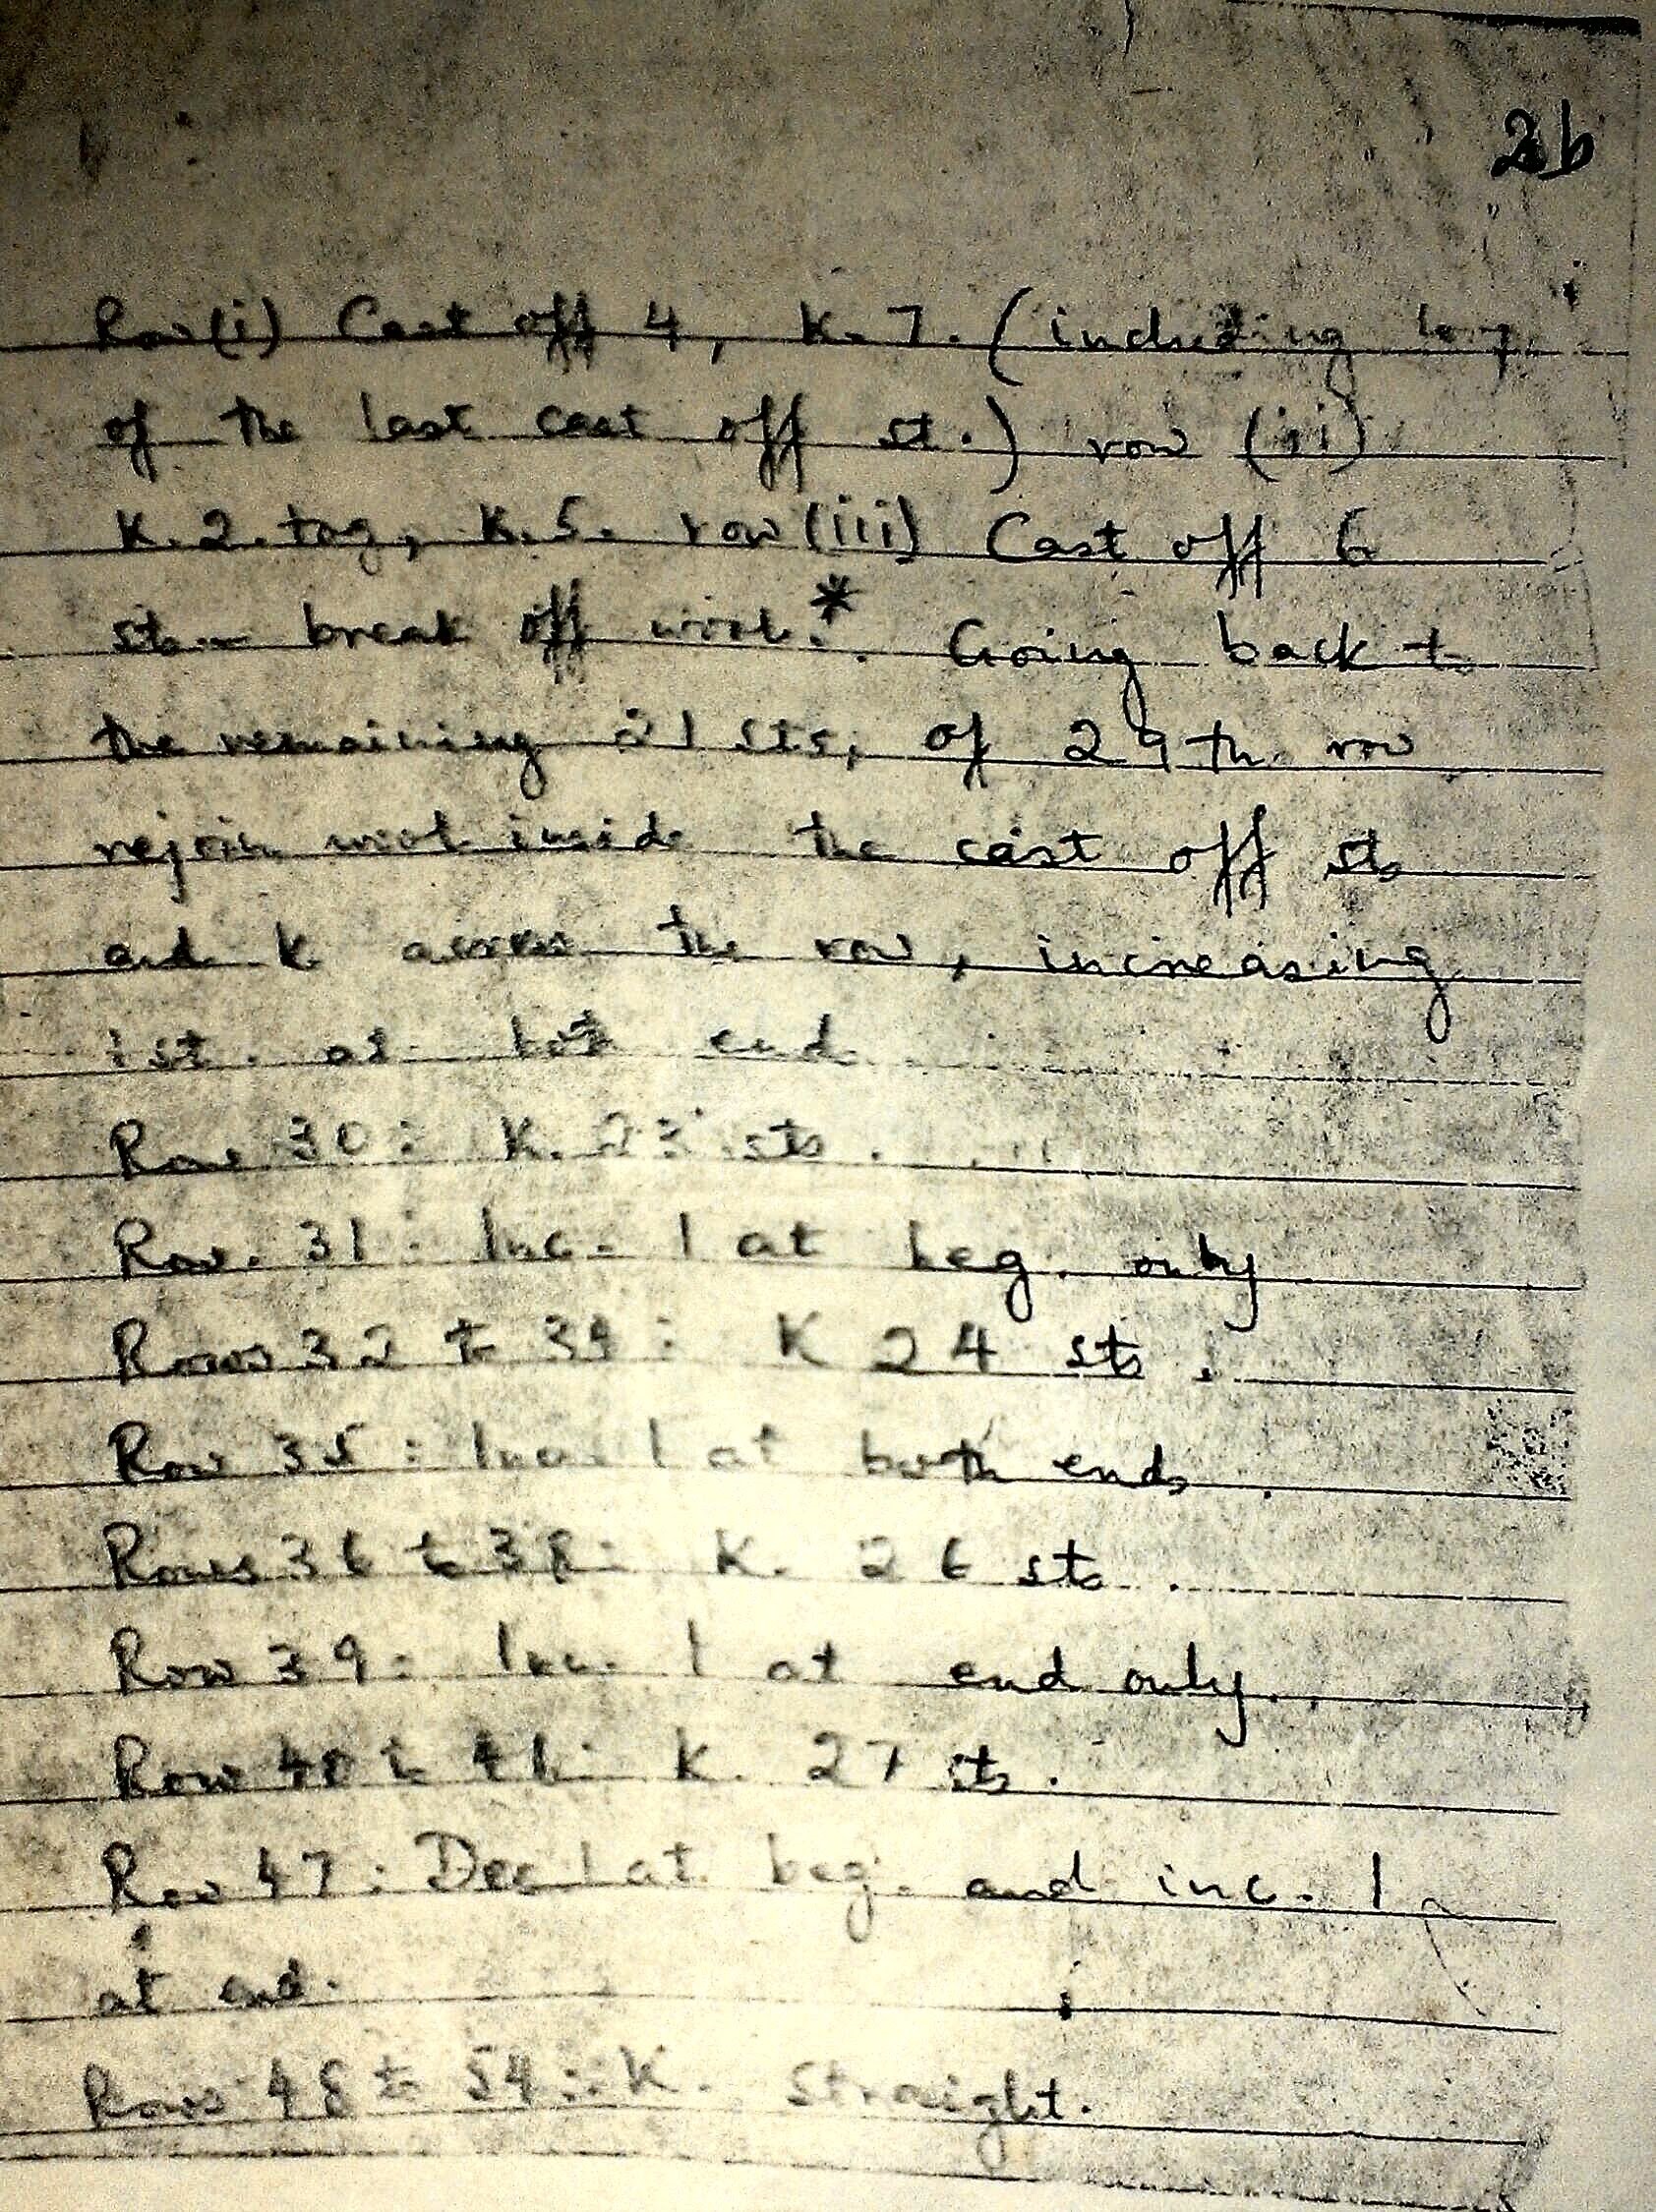 2b
Row (i) Cast off 4, K. 7. (including
of the last cast off st.) row (ii)
K. 2. tog, K. 5. row (iii) Cast off 6
sts break off wool.*. Going back to
the remaining 21 sts, of 29th row
rejoin wool inside the cast off sts
and k across the row, increasing
1st. at both end
Row 30: K. 23 sts.
Row. 31: Inc. 1 at beg. only
Rows 32 to 34: K 24 sts.
Row 35: Inc. 1 at both ends.
Rows 36 to 38: K. 26 sts.
Row 39: Inc. 1 at end only.
Row 40 to K. 27 sts.
Row 47: Dec 1 at beg. and inc. 1
at end.
Rows 48 to 54: K. Straight.